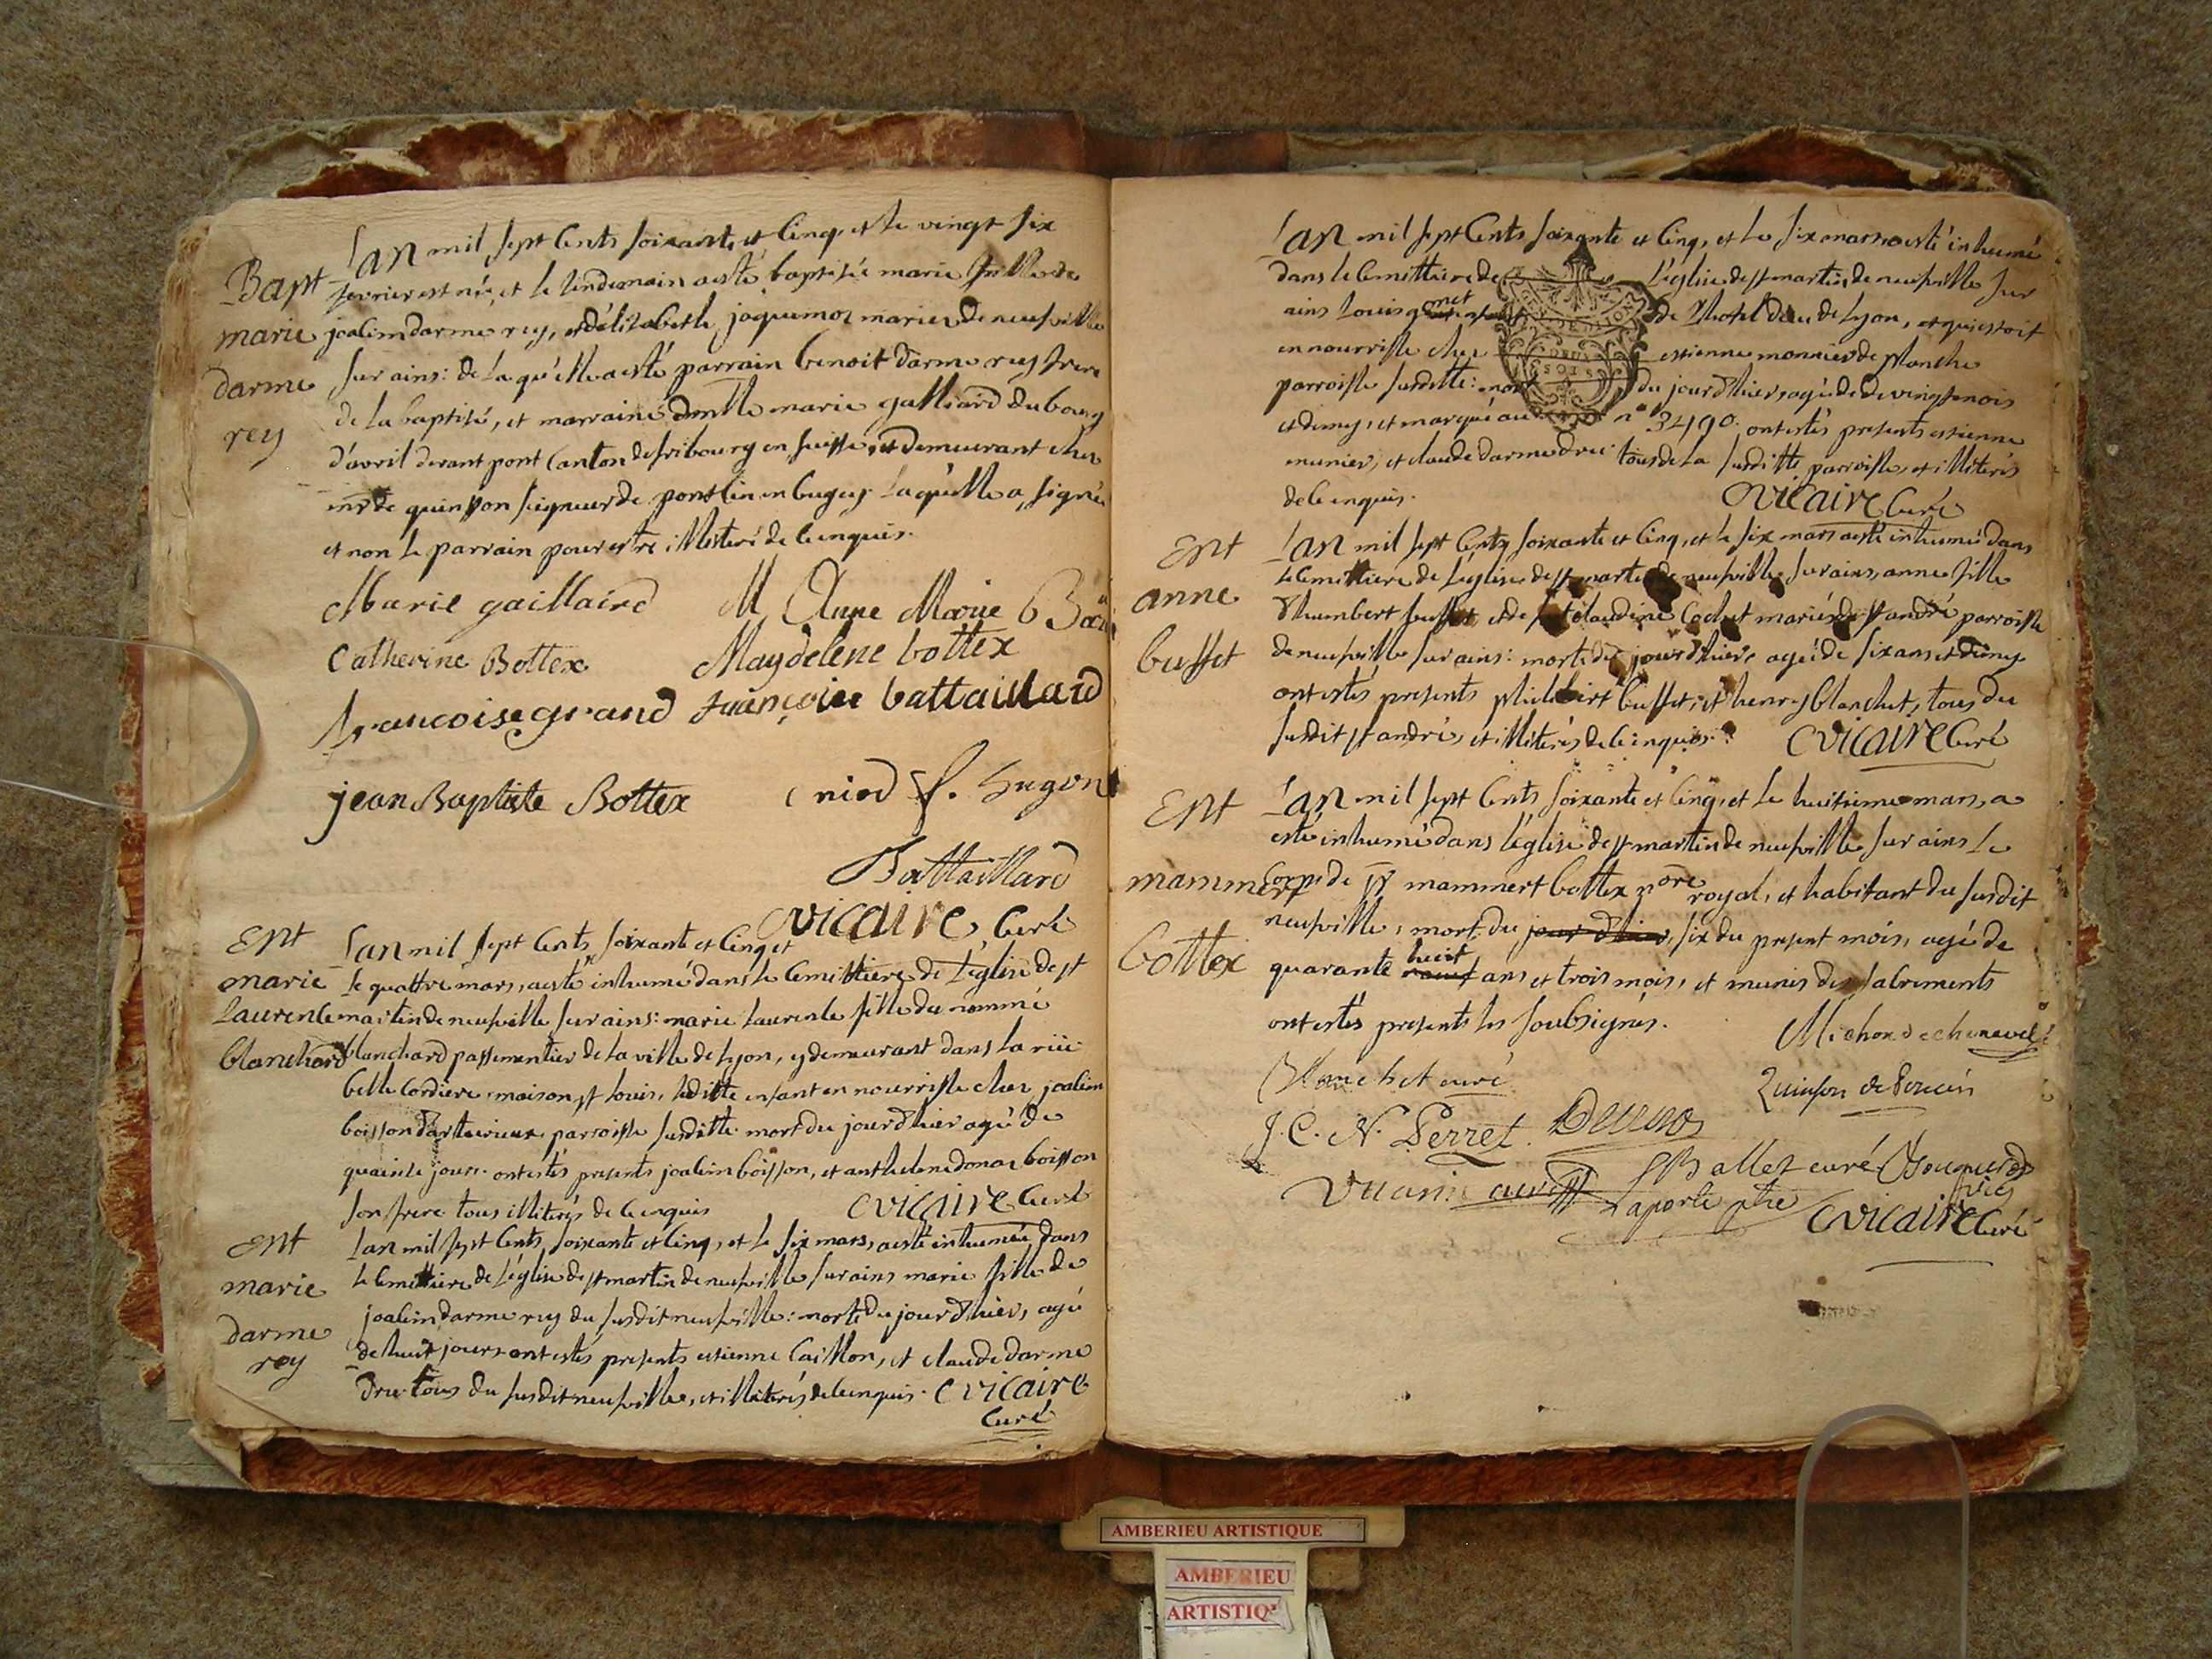 Bapt
marie
darme
rey
Lan mil sept Cents soixante et Cinq, et le vingt six
fevrier est née, et le lendemain a esté baptisée marie fille de
joachim darme rey, et délizabeth jaquemoz mariez de neufville
sur ains: de laqu'elle a esté parrain benoit darme rey frere
de la baptisé, et marraine dmlle marie gaillard du bourg
d'avril devant pont Canton de fribourg en suisse, et demeurant chez
mr de quinson seigneur de poncin en bugey. laqu'elle a signée
et non le parrain pour estre illiteré de ce enquis.
Marie gaillaird M Anne Marie
Catherine Bottex Magdelene bottex
francoise grand francoise battaillard
jean Baptiste Bottex niod f. hugon
Battaillard
C vicaire Curé
Ent
marie
Laurence
blanchard
Lan mil sept Cents soixante et Cinq et
le quattre mars, a esté inhumé dans le Cemittiere de l'église de st
martin de neufville sur ains: marie laurence fille du nommé
blanchard passementier de la ville de lyon, y demeurant dans la rüe
belle Cordiere, maison st louis, laditte enfant en nourrisse chez joachim
boisson parroisse susditte. mort du jour d'hier agé de
quainze jours. ont estés presents joachim boisson, et anthelme donas boisson
son frere tous illiterés de ce enquis C vicaire Curé
Ent
marie
darme
rey
Lan mil sept Cents soixante et Cinq, et le six mars, a esté inhumée dans
le Cemittiere de l'église de st martin de neufville sur ains marie fille de
joachim darme rey du susdit neufville: morte du jour d'hier, agé
de huit jours ont estés presents estienne Caillon, et claude darme
dru tous du susdit neufville, et illiterés de ce enquis. C vicaire
Curé
Lan mil sept Cents soixante et Cinq, et le six mars a esté inhumé
dans le Cemittiere de l'église de st martin de neufville sur
ains louis de l'hotel dieu de lyon, et qui estoit
en nourrisse chez estienne monnier de planche
parroisse susditte: mort du jour d'hier, agé de de vingt mois
et demy, et marqué au n° 3490. ont estés presents estienne
munier, et claude darme dru tous de la susditte parroisse, et illiterés
de ce enquis. C vicaire Curé
Ent
anne
buffet
Lan mil sept Cents soixante et Cinq, et le six mars a esté inhumé dans
le Cemittiere de l'eglise de st martin de neufville sur ains, anne fille
d'humbert buffet et de claudine Cochet mariés de st andré parroisse
de neufville sur ains: morte du jour d'hier, agée de six ans et demy
ont estés presents philibert buffet, et henry blanchet, tous du
susdit st andré, et illiterés de ce enquis. C vicaire Curé
Ent
mammert
bottex
Lan mil sept Cents soixante et Cinq, et le huitieme mars, a
esté inhumé dans l'église de st martin de neufville sur ains le
Corps de sr mammert bottex nore royal, et habitant du susdit
neufville, mort du jour d'hier, six du present mois, agé de
quarante neuf huit ans et trois mois, et munis des sacrements
ont estés presents les soubsignés. Michon de chenavel
Blanchet curé Quinson de Poncin
J. C. N. Perret.
Ballet curé
Laporte ptre C vicaire Curé
AMBERIEU ARTISTIQUE
AMBERIEU
ARTISTIQ